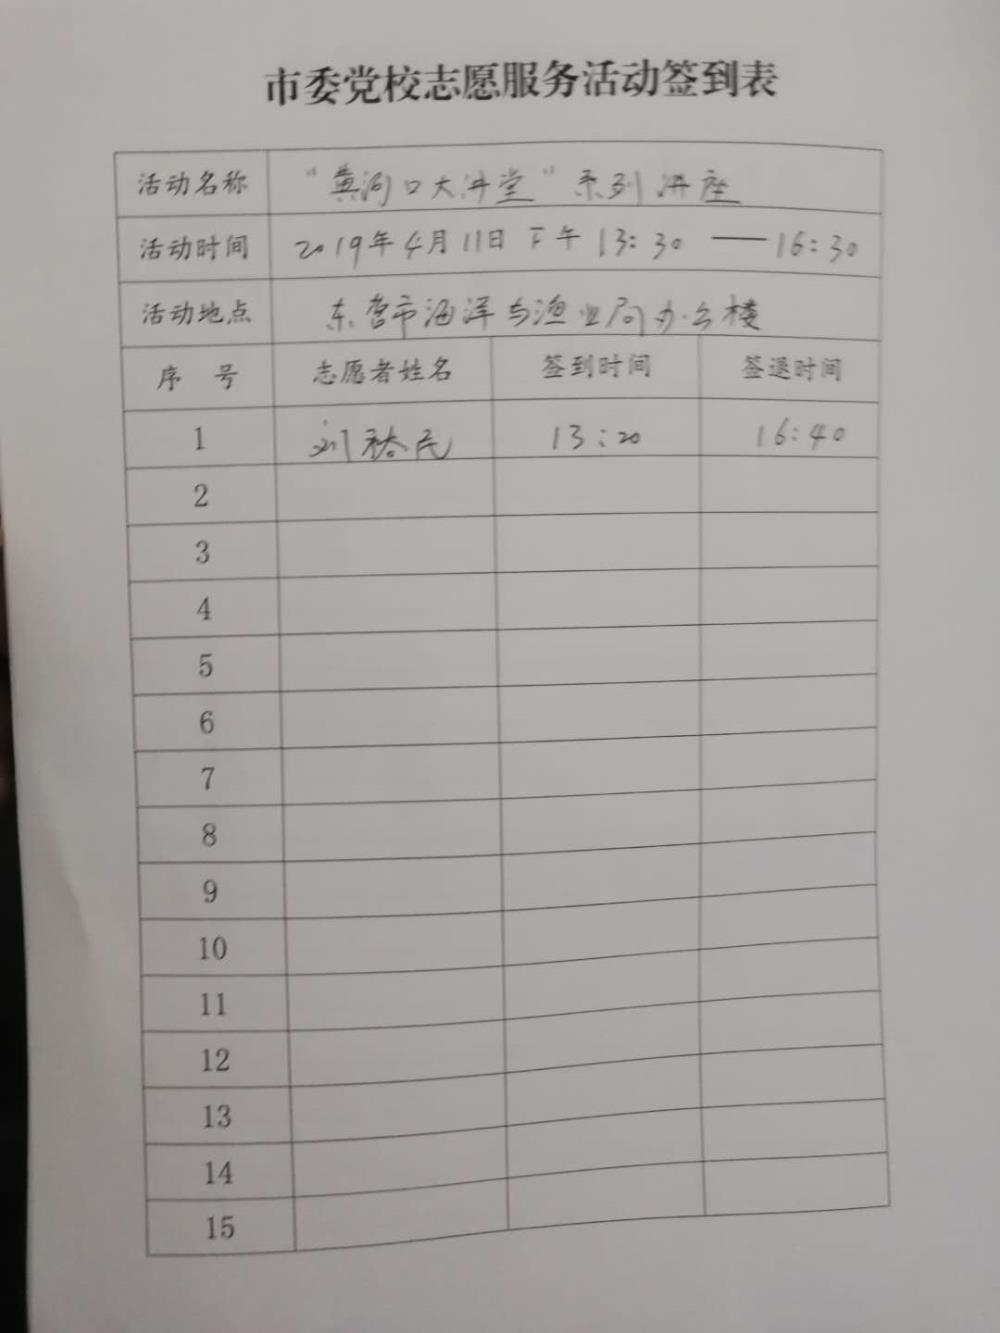 市委党校志愿服务活动签到表
活动名称 “黄河口大讲堂”系列讲座
活动时间 2019年4月11日下午13:30 — 16:30
活动地点 东营市海洋与渔业局办公楼
序 号 志愿者姓名 签到时间 签退时间
1 刘 民 13:20 16:40
2
3
4
5
6
7
8
9
10
11
12
13
14
15